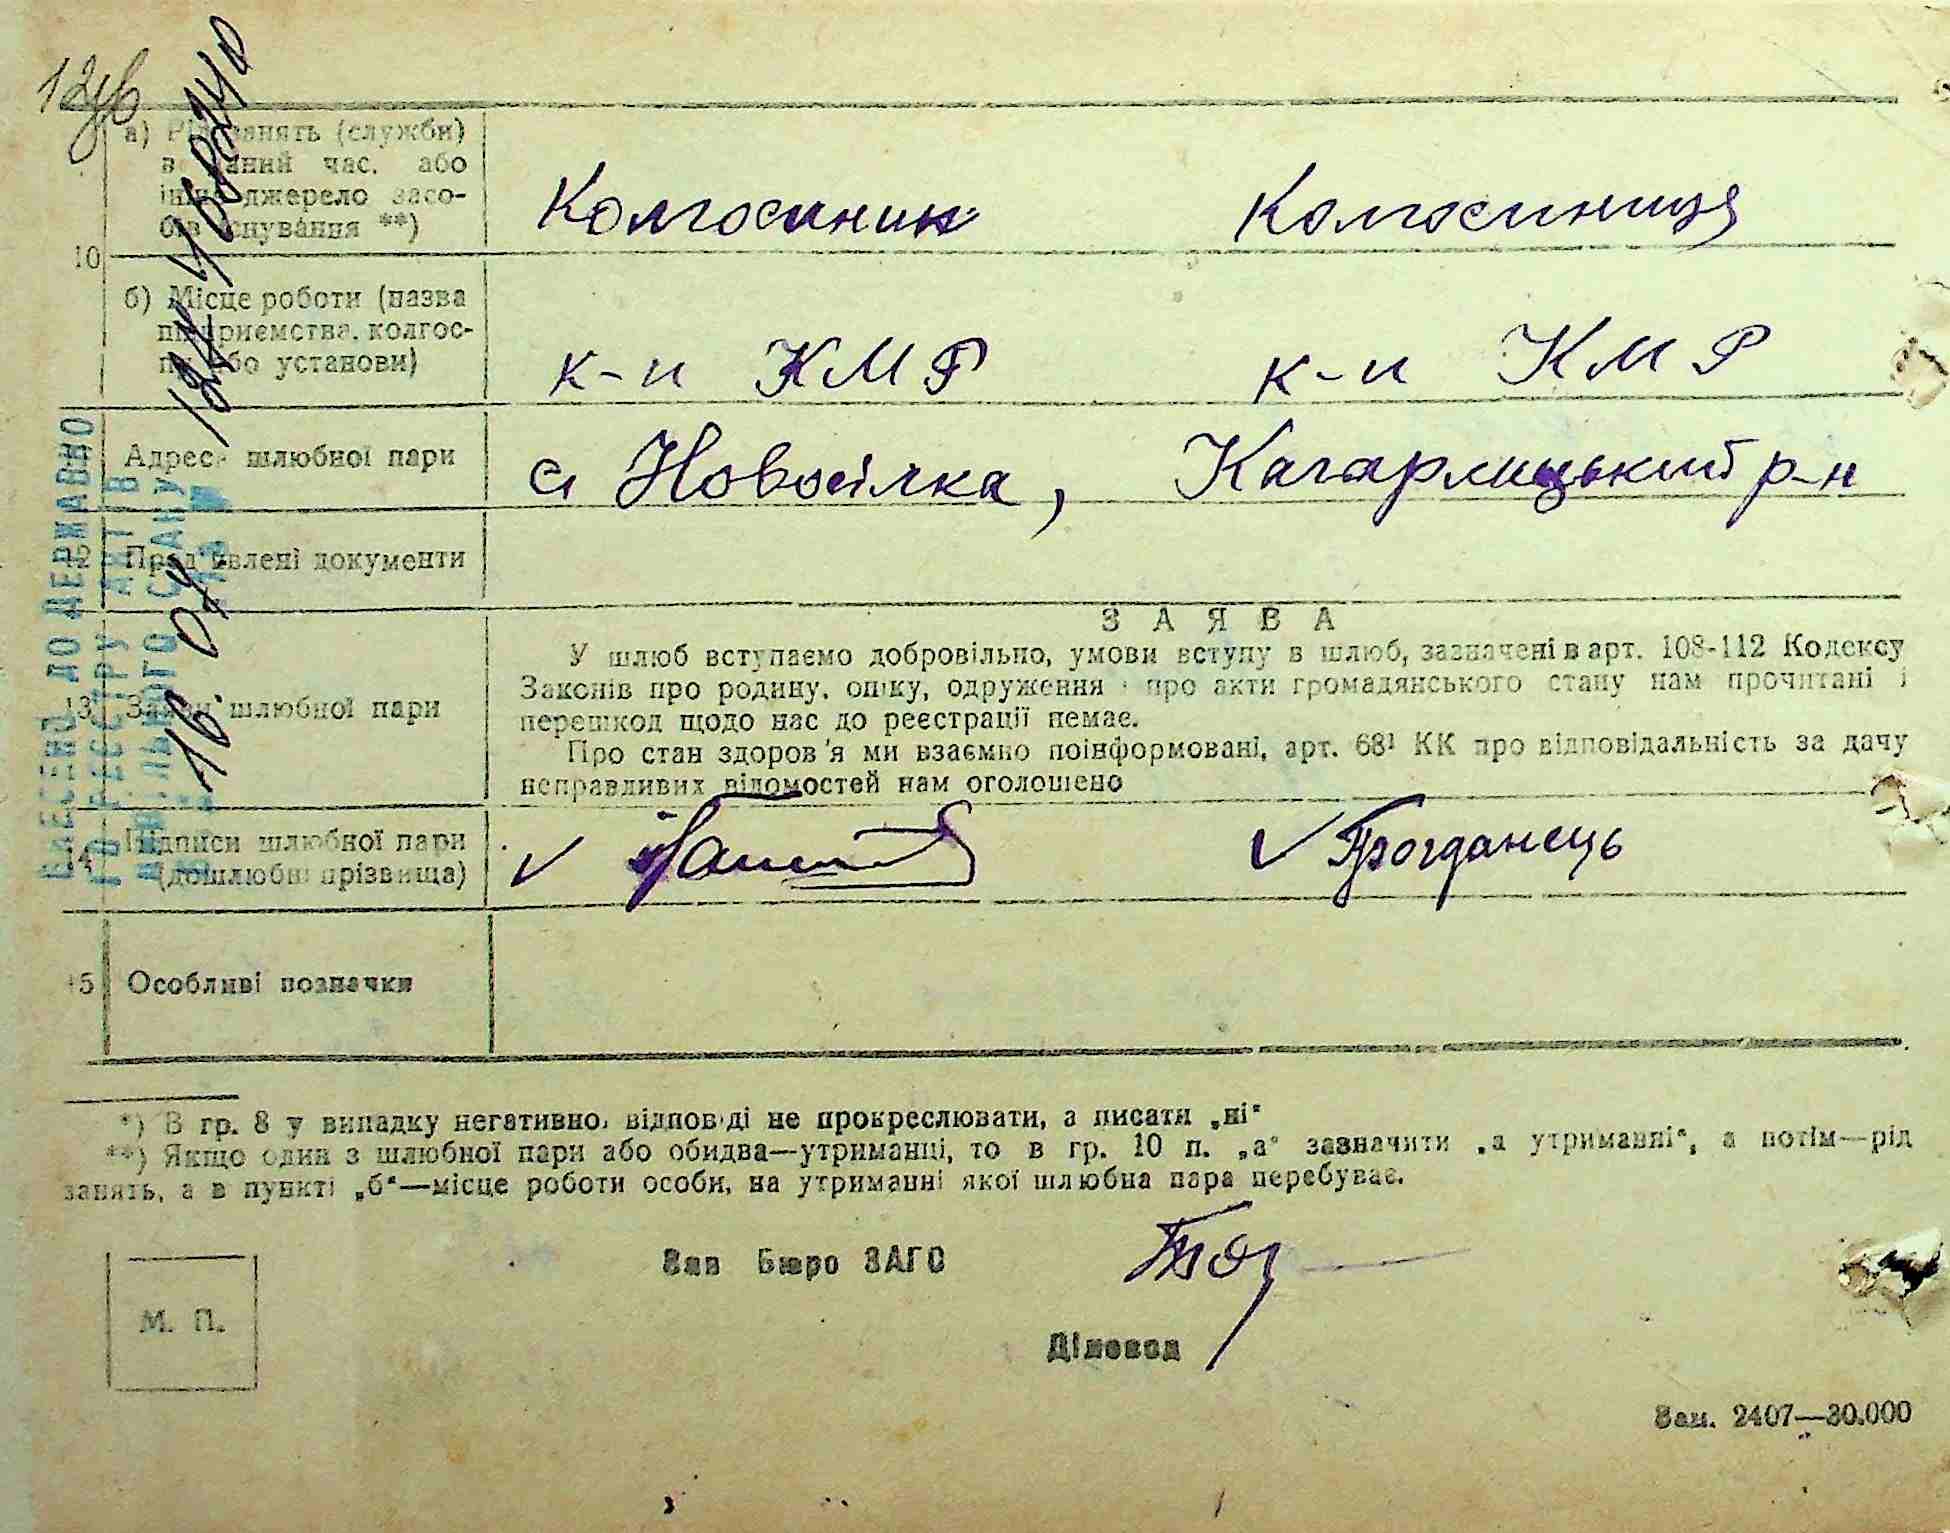 12зв
а) Рід занять (служби)
в даний час, або
інше джерело засо-
бів існування **)
Колгоспник Колгоспниця
10
б) Місце роботи (назва
підприємства, колгос-
пу або установи)
к-п КМР к-п КМР
Адреса шлюбної пари
с Новосілка, Кагарлицький р-н
12 Пред'явлені документи
ЗАЯВА
13 Заява шлюбної пари
У шлюб вступаємо добровільно, умови вступу в шлюб, зазначені в арт. 108-112 Кодексу
Законів про родину, опіку, одруження і про акти громадянського стану нам прочитані і
перешкод щодо нас до реєстрації немає.
Про стан здоров'я ми взаємно поінформовані, арт. 68¹ КК про відповідальність за дачу
неправдивих відомостей нам оголошено
14 Підписи шлюбної пари
(дошлюбні прізвища)
15 Особливі позначки
*) В гр. 8 у випадку негативної відповіді не прокреслювати, а писати „ні"
**) Якщо один з шлюбної пари або обидва—утриманці, то в гр. 10 п. „а" зазначити „а утриманні", а потім—рід
занять, а в пункті „б"—місце роботи особи, на утриманні якої шлюбна пара перебуває.
Зав Бюро ЗАГС
М. П.
Діловод
Зам. 2407—30.000
ВНЕСЕНО ДО ДЕРЖАВНО
ГО РЕЄСТРУ АКТІВ
ЦИВІЛЬНОГО СТАНУ